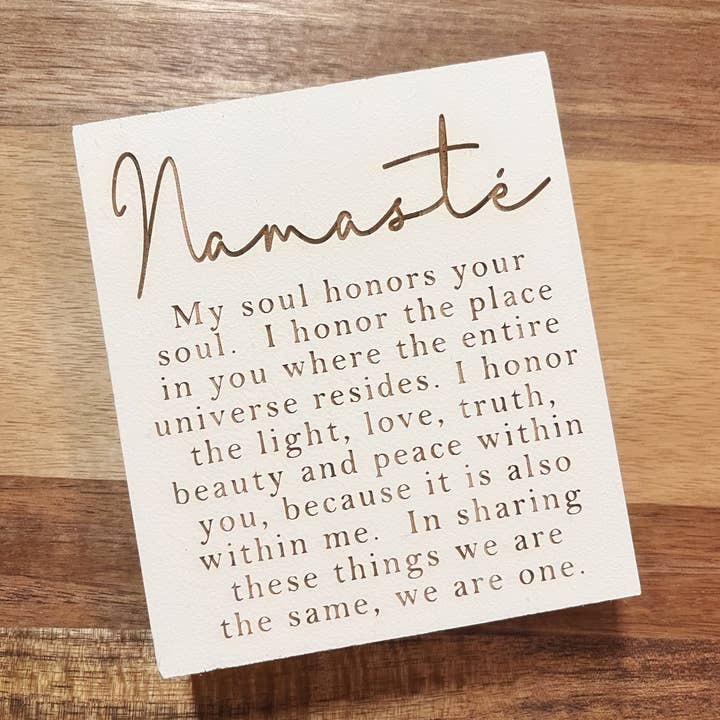 Namasté
My soul honors your
soul. I honor the place
in you where the entire
universe resides. I honor
the light, love, truth,
beauty and peace within
you, because it is also
within me. In sharing
these things we are
the same, we are one.